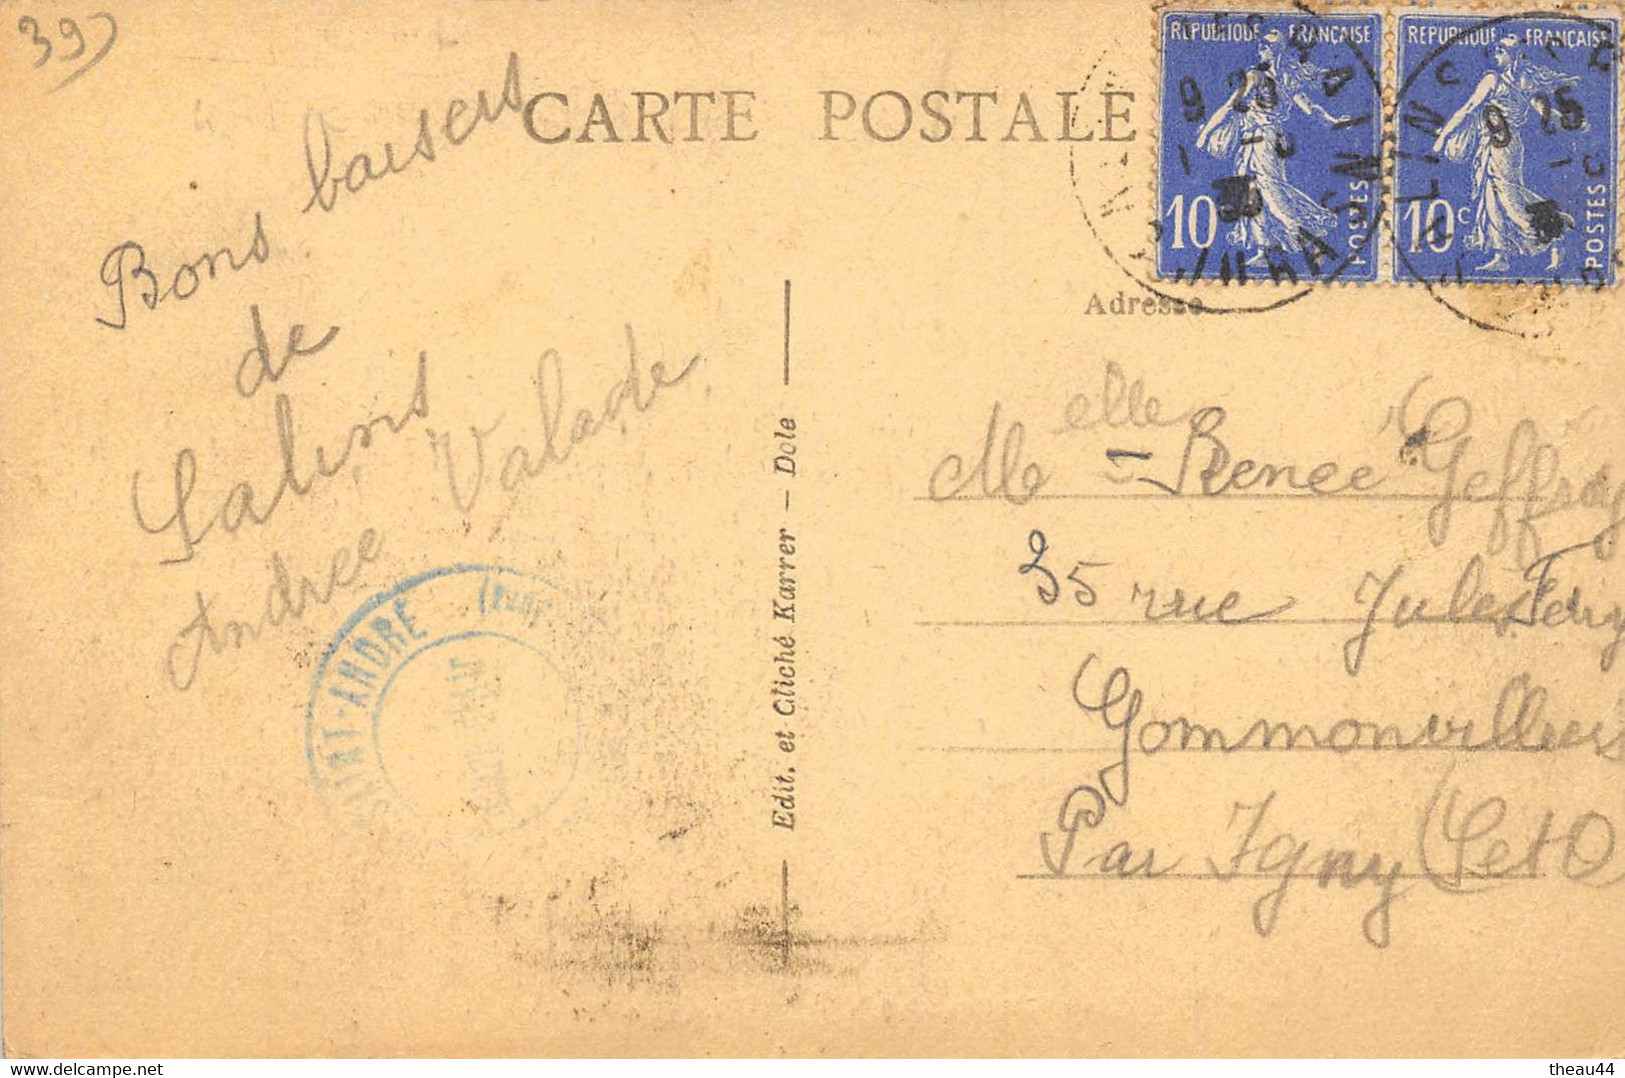 39)
CARTE POSTALE
REPUBLIQUE FRANÇAISE
10
POSTES
REPUBLIQUE FRANÇAISE
10c
POSTES
9 25
9 25
Bons baisers
de
Salins
Andree Valade
SAINT-ANDRÉ
Edit. et Cliché Karrer - Dole
Adresse
Melle Renee Geffroy
35 rue Jules Ferry
Gommonvilliers
Par Igny (S et O
www.delcampe.net
theau44